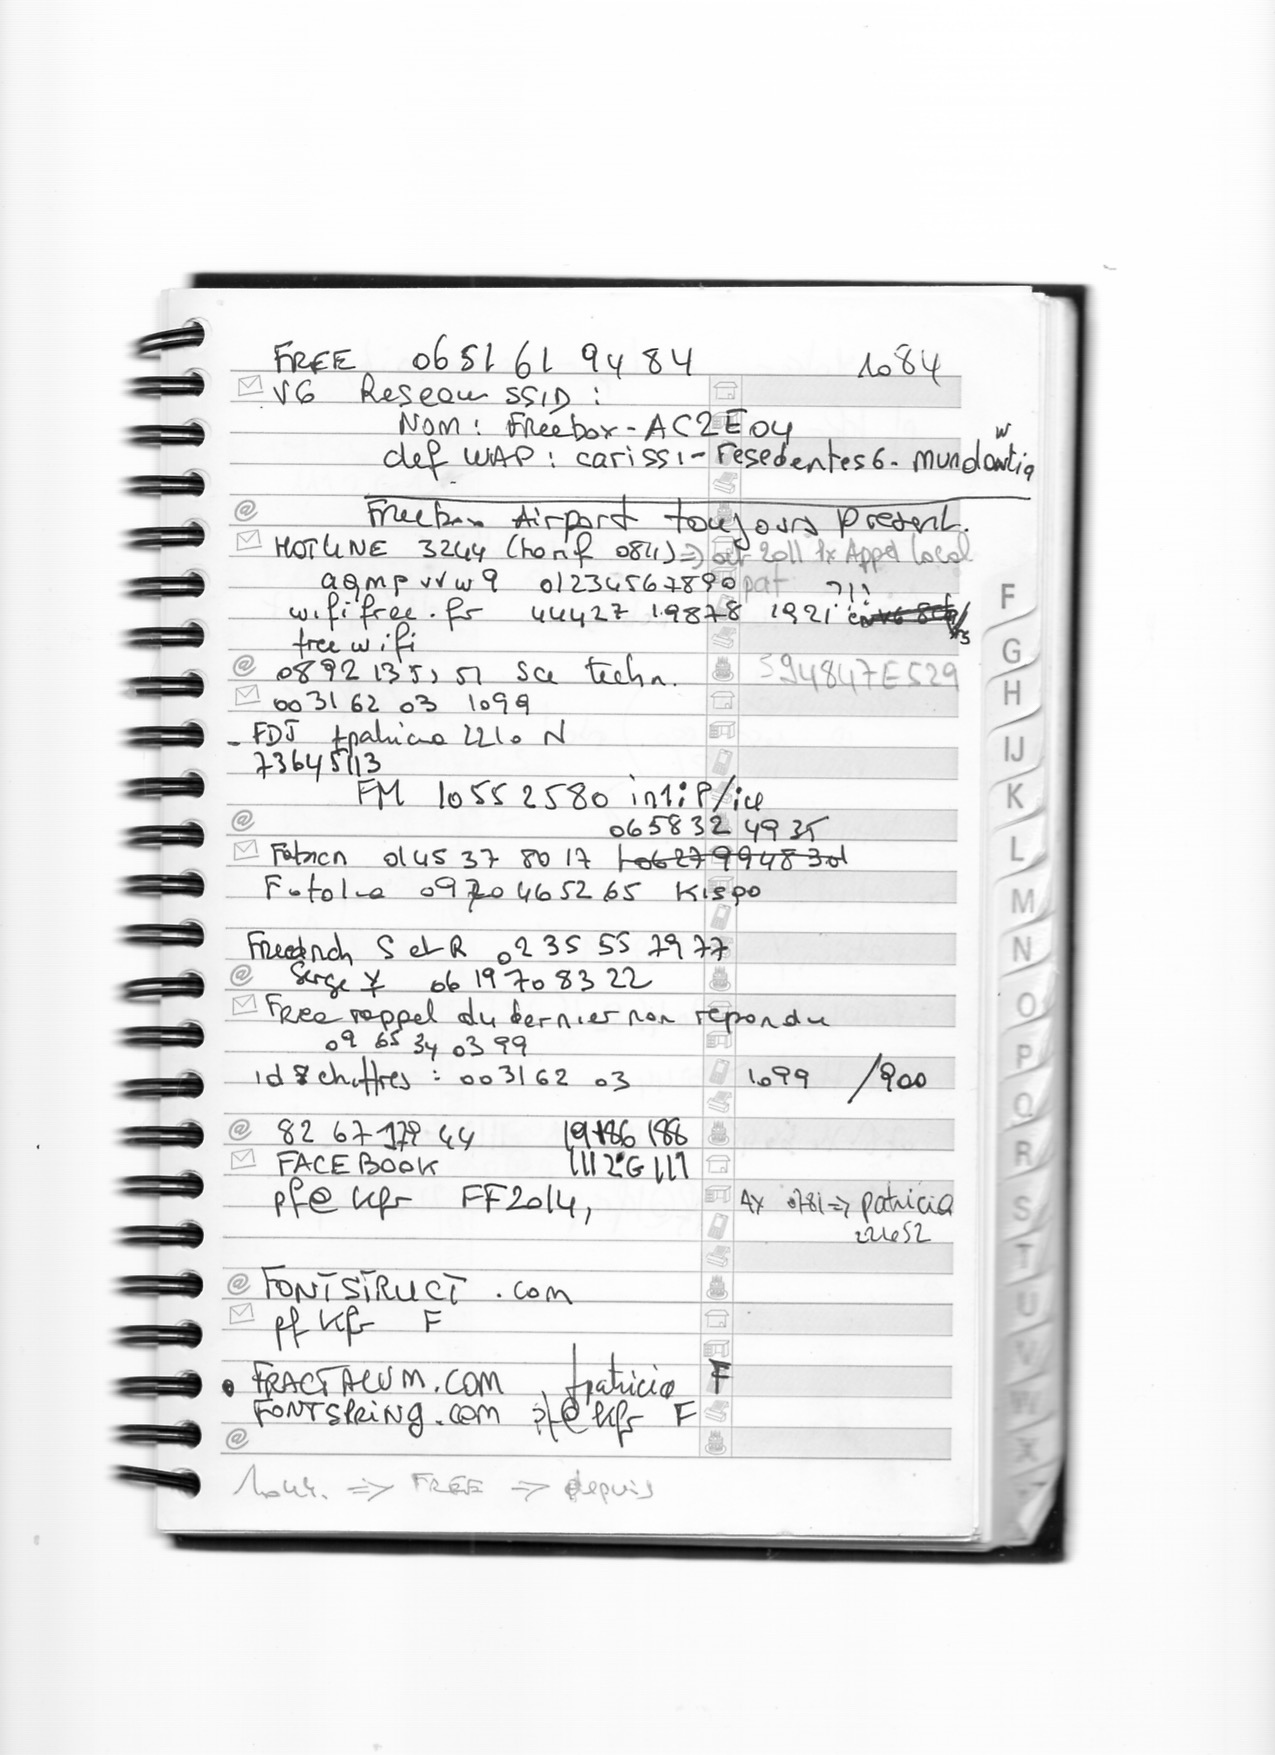 FREE 06 51 61 94 84 1084
V6 Reseau SSID :
Nom : Freebox-AC2E04
w
clef WAP : carissi-resedentes6-mundantia
Freebox Airport toujours present.
HOTLINE 3244 (tarif 0811) => oct 2011 1x Appel local
aqmprvw9 01234567890pat ?!!
wifi free.fr 44427 19878 1921
free wifi
@ 0892 135151 Sce techn. 594847E529
003162 03 1099
- FDJ tpatricia 2210 N
73645113
FM 1055 2580 inti P/ice
@ 0658 32 49 35
Fabien 01 45 37 80 17 06 27 99 48 30
Fotolia 0970 46 52 65 Kispo
Friedrich S et R 02 35 55 79 77
@ Serge Y 06 19 70 83 22
Free rappel du dernier non repondu
09 65 34 03 99
id 8 chiffres : 003162 03 1099 /900
@ 82 67 179 44 19186 188
FACEBOOK 1112G111
pf@kfr FF2014, 4x 0781 => patricia
221652
@ FONTSTRUCT.com
pf kfr F
• FRACTALUM.COM, tpatricia F
FONTSPRING.com pf@kfr F
@
1044. => FREE => depuis
F
G
H
IJ
K
L
M
N
O
P
Q
R
S
T
U
V
W
X